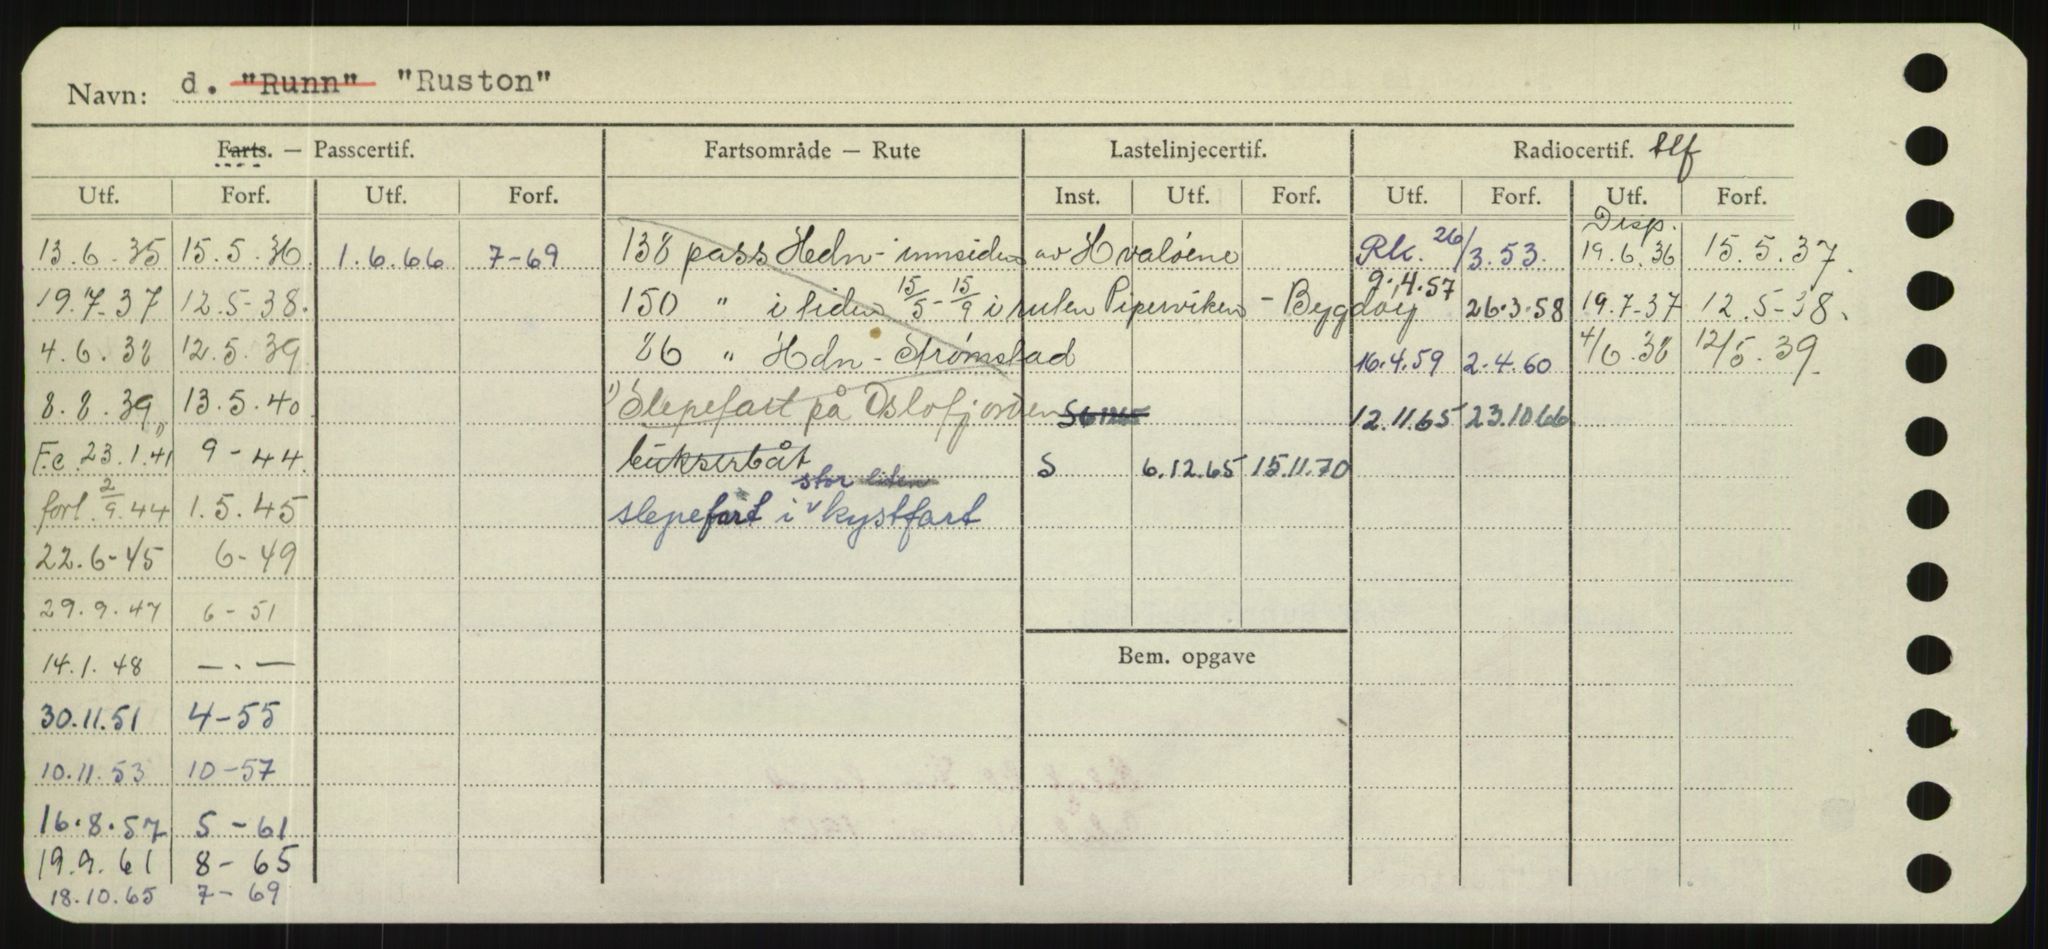 Navn: d. "Runn" "Ruston"
Farts. — Passcertif. Fartsområde — Rute Lastelinjecertif. Radiocertif. tlf
Utf. Forf. Utf. Forf. Inst. Utf. Forf. Utf. Forf. Utf. Forf.
Disp.
13.6.35 15.5.36. 1.6.66 7-69 138 pass Hdn - innsiden av Hvaløene Rk. 26/3.53. 19.6.36 15.5.37.
9.4.57
19.7-37 12.5-38. 150 " i tiden 15/5 - 15/9 i ruten Piperviken - Bygdøy 26.3.58 19.7-37 12.5-38.
4.6.38 12.5.39. 86 " Hdn - Strømstad 16.4.59 2.4.60 4/6.38 12/5.39.
8.8.39 13.5.40. 1) Slepefart på Oslofjorden S 6 12 65 12.11.65 23.10 66
F.c. 23.1.41 1) 9-44. bukserbåt S 6.12.65 15.11.70
stor liten
forl. 2/9.44 1.5.45 slepefart i v kystfart
22.6-45 6-49
29.9.47 6-51
14.1.48 — . —
Bem. opgave
30.11.51 4-55
10.11.53 10-57
16.8.57 5-61
19.9.61 8-65
18.10.65 7-69